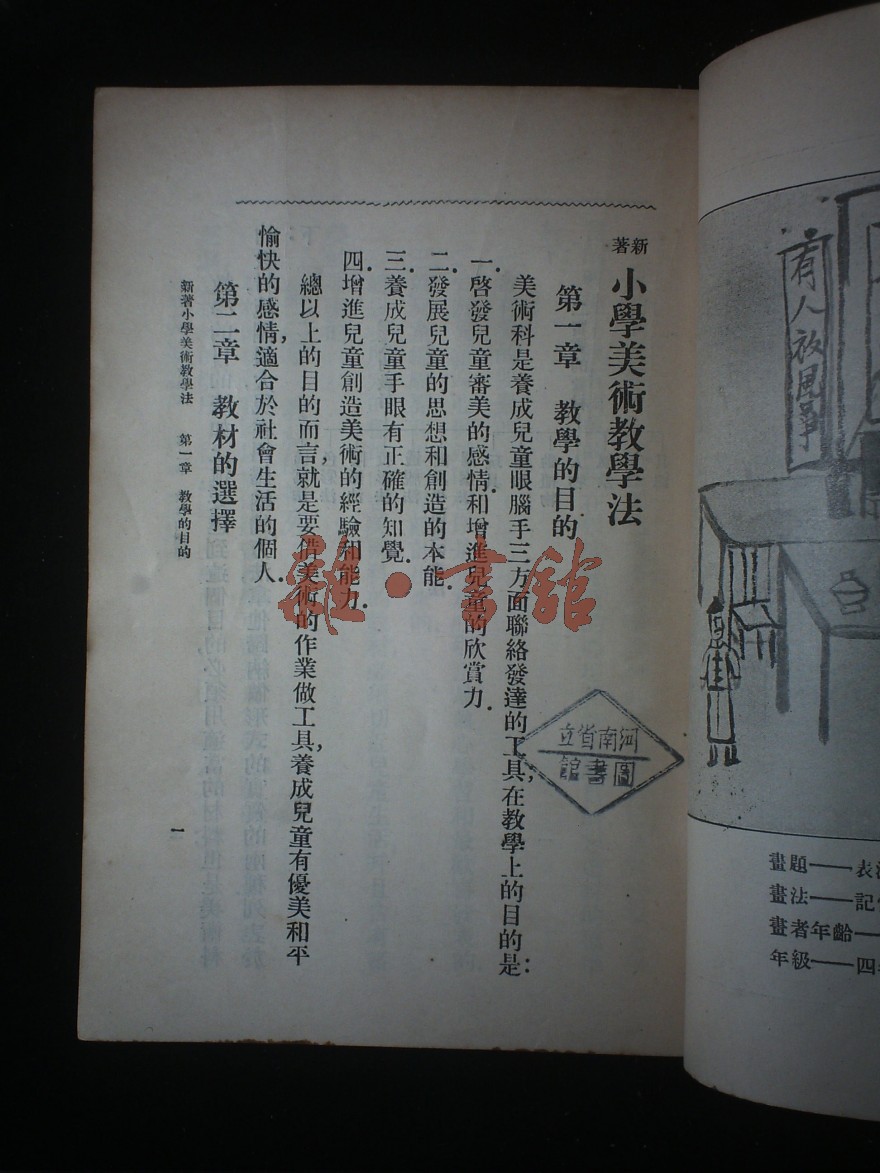 新著 小學美術教學法
第一章 教學的目的
美術科是養成兒童眼腦手三方面聯絡發達的工具，在教學上的目的是：
一．啓發兒童審美的感情和增進兒童的欣賞力．
二．發展兒童的思想和創造的本能．
三．養成兒童手眼有正確的知覺．
四．增進兒童創造美術的經驗和能力．
總以上的目的而言，就是要借美術的作業做工具，養成兒童有優美和平
愉快的感情，適合於社會生活的個人．
第二章 教材的選擇
新著小學美術教學法 第一章 教學的目的
一
河南省立
圖書館
雜·書館
有人放風爭
畫題——表
畫法——記
畫者年齡——
年級——四